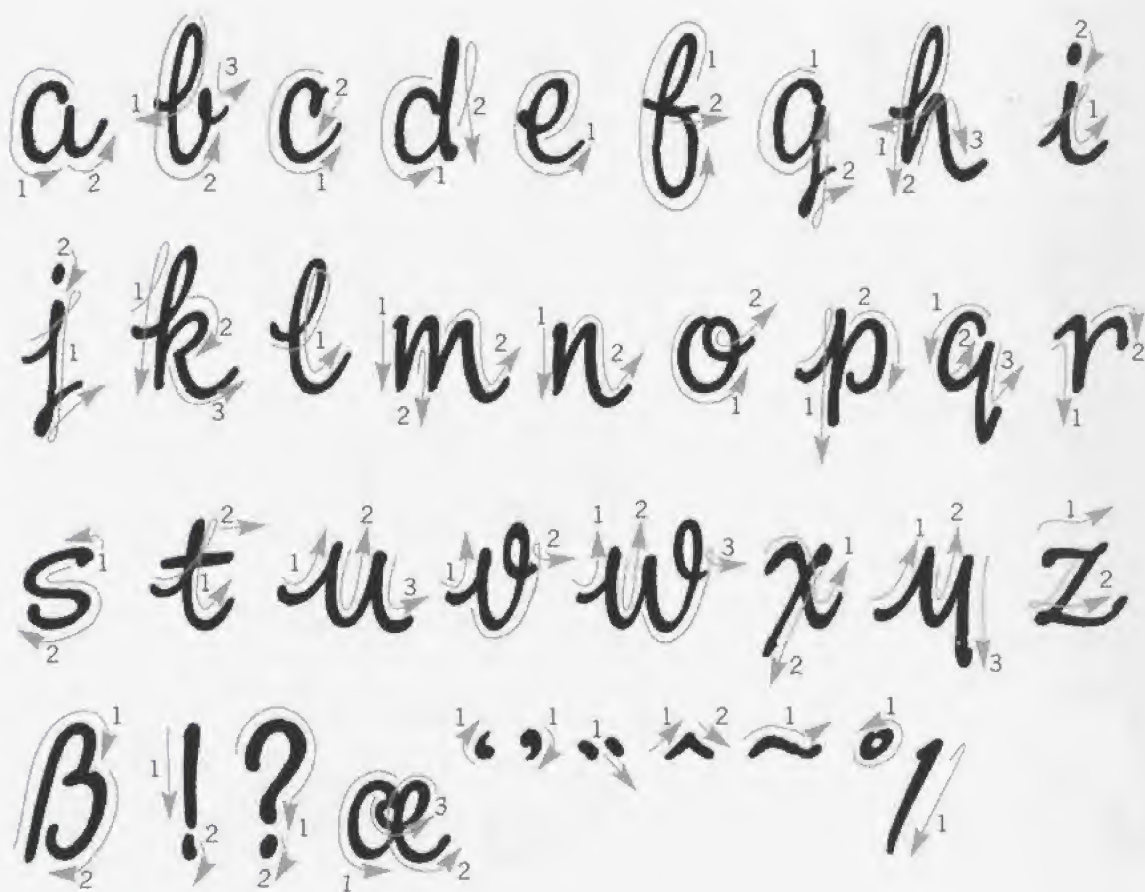 a b c d e f g h i
j k l m n o p q r
s t u v w x y z
ß ! ? œ ‘ ’ ¨ ^ ~ ° /